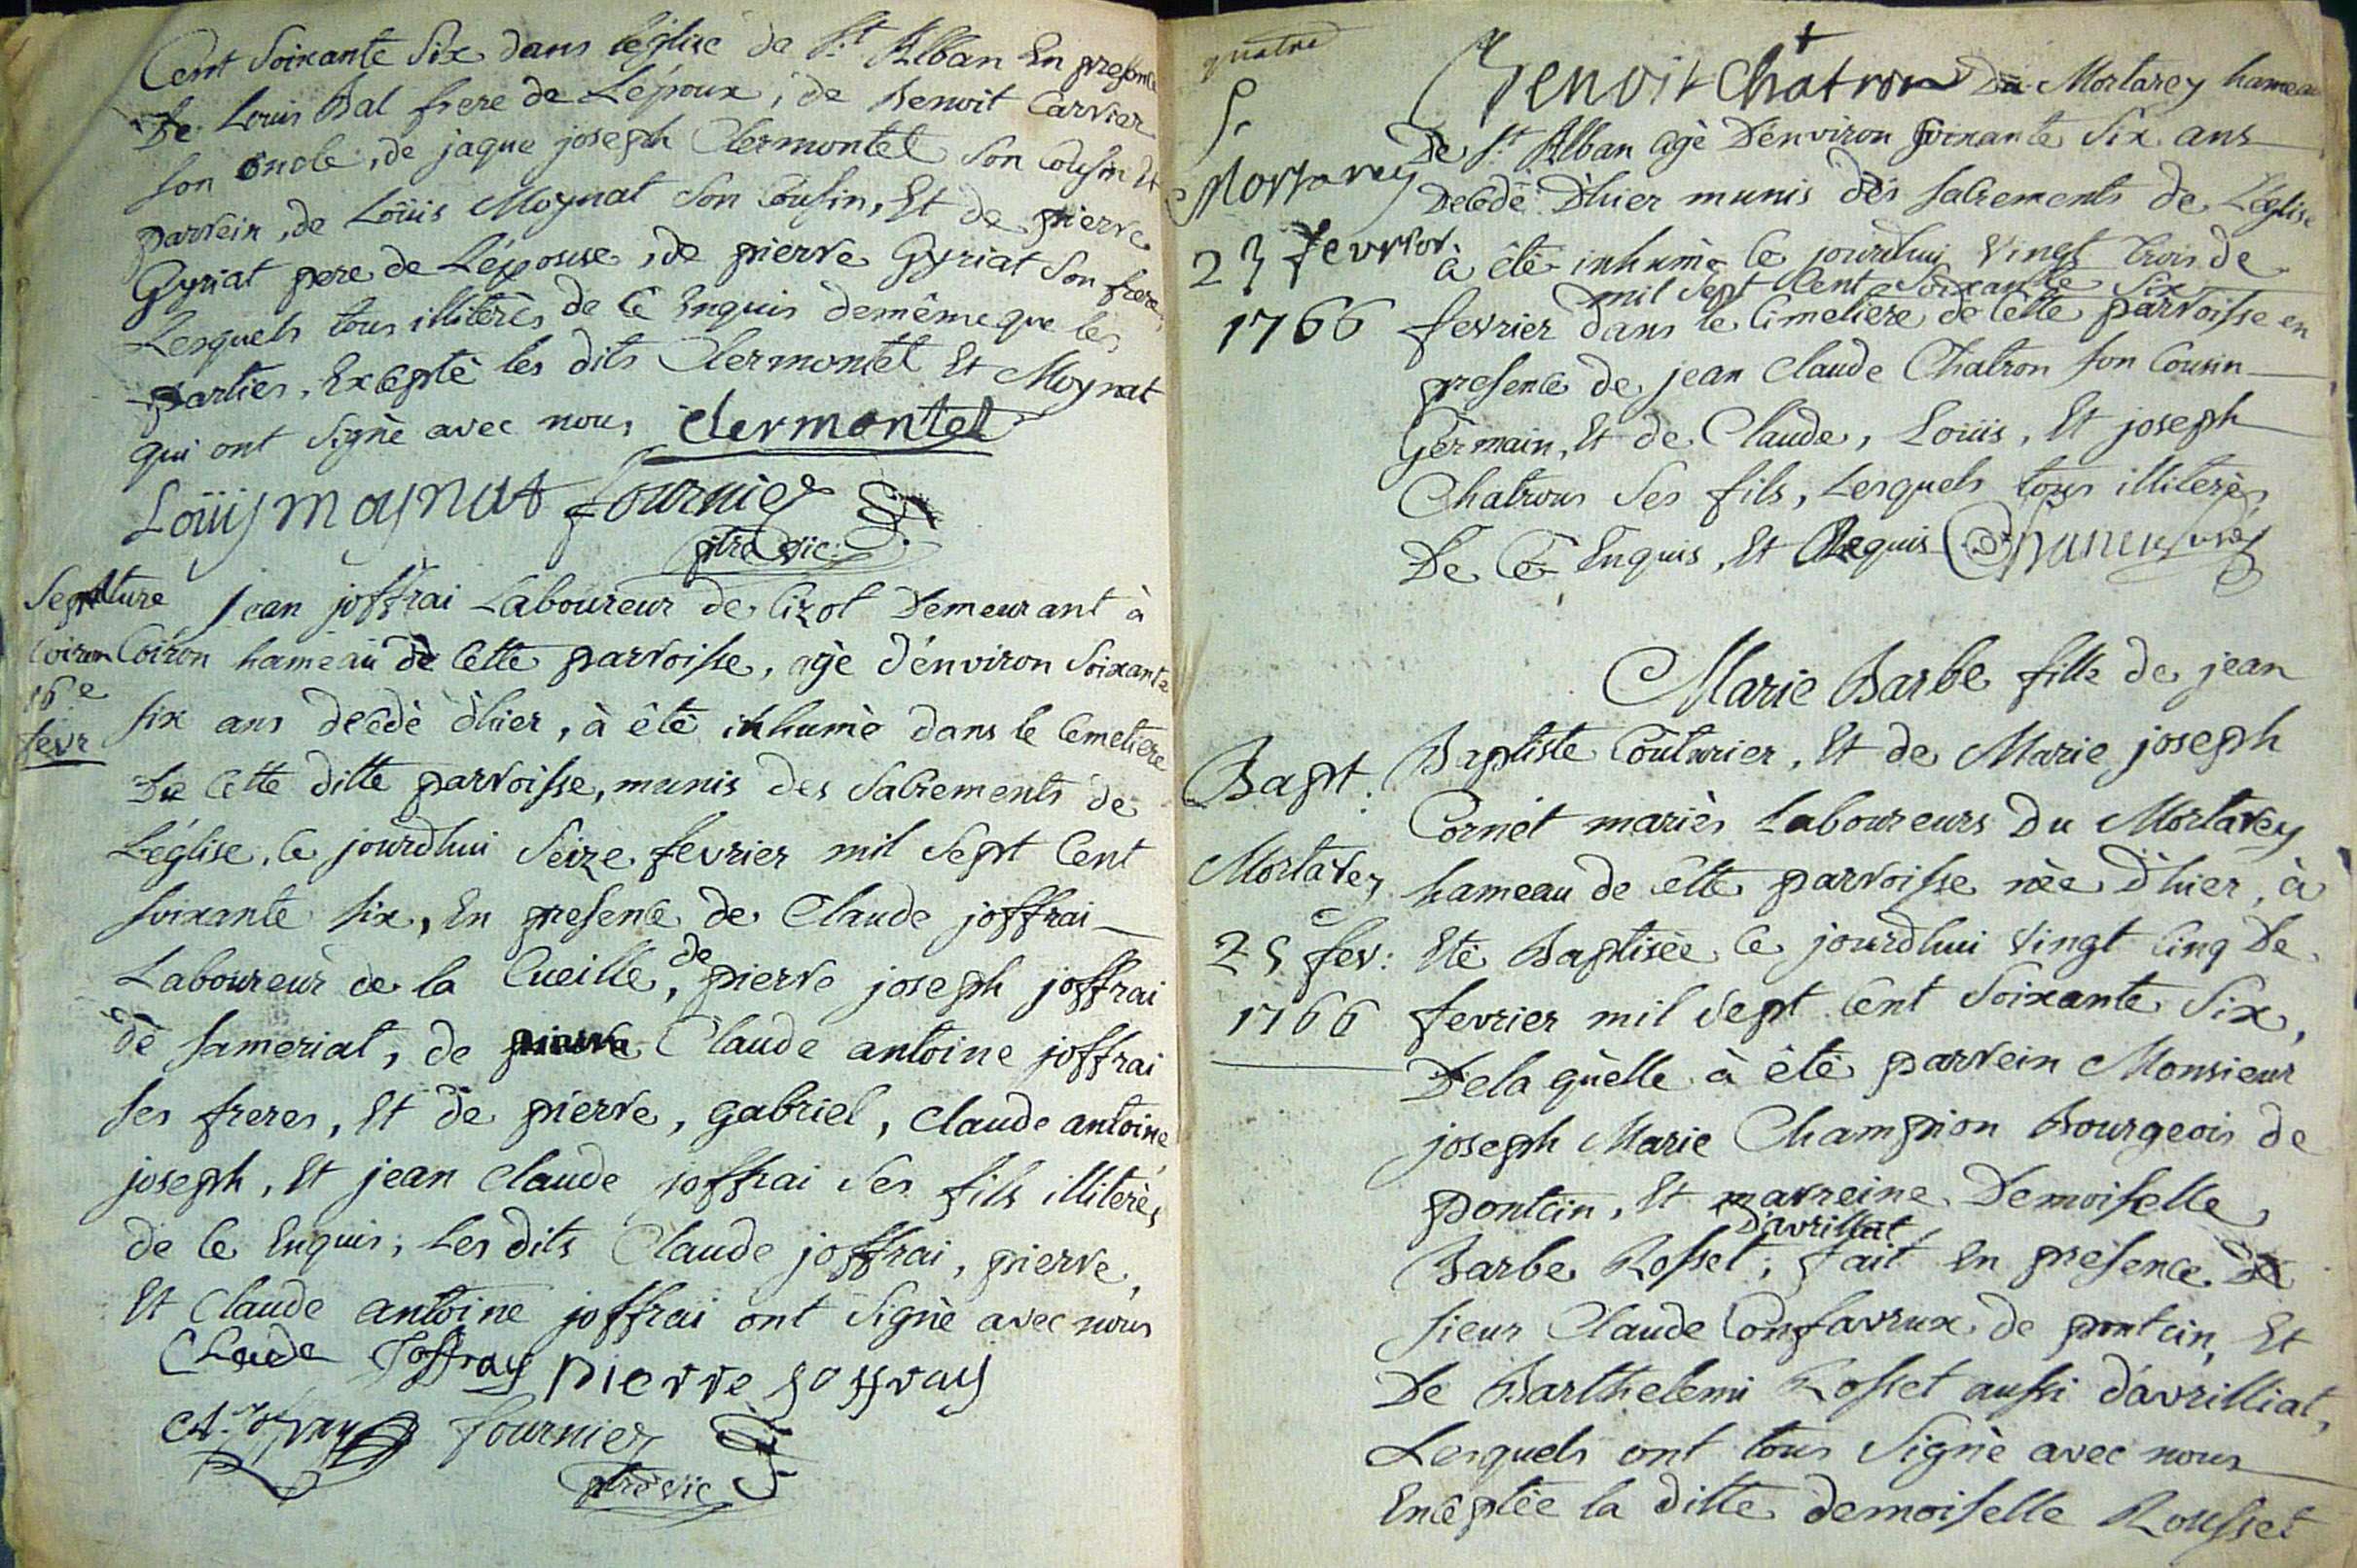 Cent Soixante Six dans l'église de St Alban En presence
De Louis Bal frere de L'époux, de Benoit Carrier
son oncle, de jaque joseph Clermontel son Cousin Et
parrein, de Loüis Moynat son Cousin, Et de pierre
Gyriat pere de L'épouse, de pierre Gyriat son frere,
Lesquels tous illiterès de Ce Enquis demême que les
parties, Exceptè les dits Clermontel Et Moynat
qui ont signè avec nous, Clermontel
Loüis moynat fournier
ptre vic:
Sepulture
Coiron
16e
fevr
Jean joffrai Laboureur de Cizot Demeurant à
Coiron hameau de Cette parroisse, agè d'environ Soixante
six ans decedè d'hier, à êtè inhumè dans le Cemetiere
De Cette ditte parroisse, munis des Sacrements de
L'église, Ce jourd'hui Seize fevrier mil Sept Cent
soixante six, En presence de Claude joffrai
Laboureur de la Cueille, de pierre joseph joffrai
de sameriat, de Claude antoine joffrai
ses freres, Et de pierre, gabriel, Claude antoine,
joseph, Et jean Claude joffrai ses fils illiterès
de Ce Enquis, Les dits Claude joffrai, pierre,
Et Claude antoine joffrai ont Signè avec nous
Claude Joffray pierre joffray
fournier
ptre vic
quatre
S.
Mortarey
23 fevrier
1766
Benoit Chatron Du Mortarey hameau
De St Alban agè D'environ soixante Six ans
Decedè D'hier munis des sacrements de L'église
à êtè inhumè Ce jourdhui vingt trois de
mil Sept Cent Soixante Six
fevrier dans le Cimetiere de Cette parroisse en
presence de jean Claude Chatron son Cousin
Germain, Et de Claude, Loüis, Et joseph
Chatrons ses fils, Lesquels tous illiterès
De Ce Enquis, Et Requis
Bapt.
Mortarey
25 fev:
1766
Marie Barbe fille de jean
Baptiste Couturier, Et de Marie joseph
Cornet mariès Laboureurs Du Mortarey
hameau de Cette parroisse nèe D'hier, à
Etè Baptisèe Ce jourd'hui vingt Cinq De
fevrier mil Sept Cent Soixante Six,
De la quelle à êtè parrein Monsieur
joseph Marie Champion Bourgeois de
pontein, Et marreine Demoiselle
D'avrillat
Barbe Rosset, fait En presence De
sieur Claude Confavrux de pontein, Et
De Barthelemi Rosset aussi d'avrilliat,
Lesquels ont tous Signè avec nous
Exceptèe la ditte demoiselle Rousset